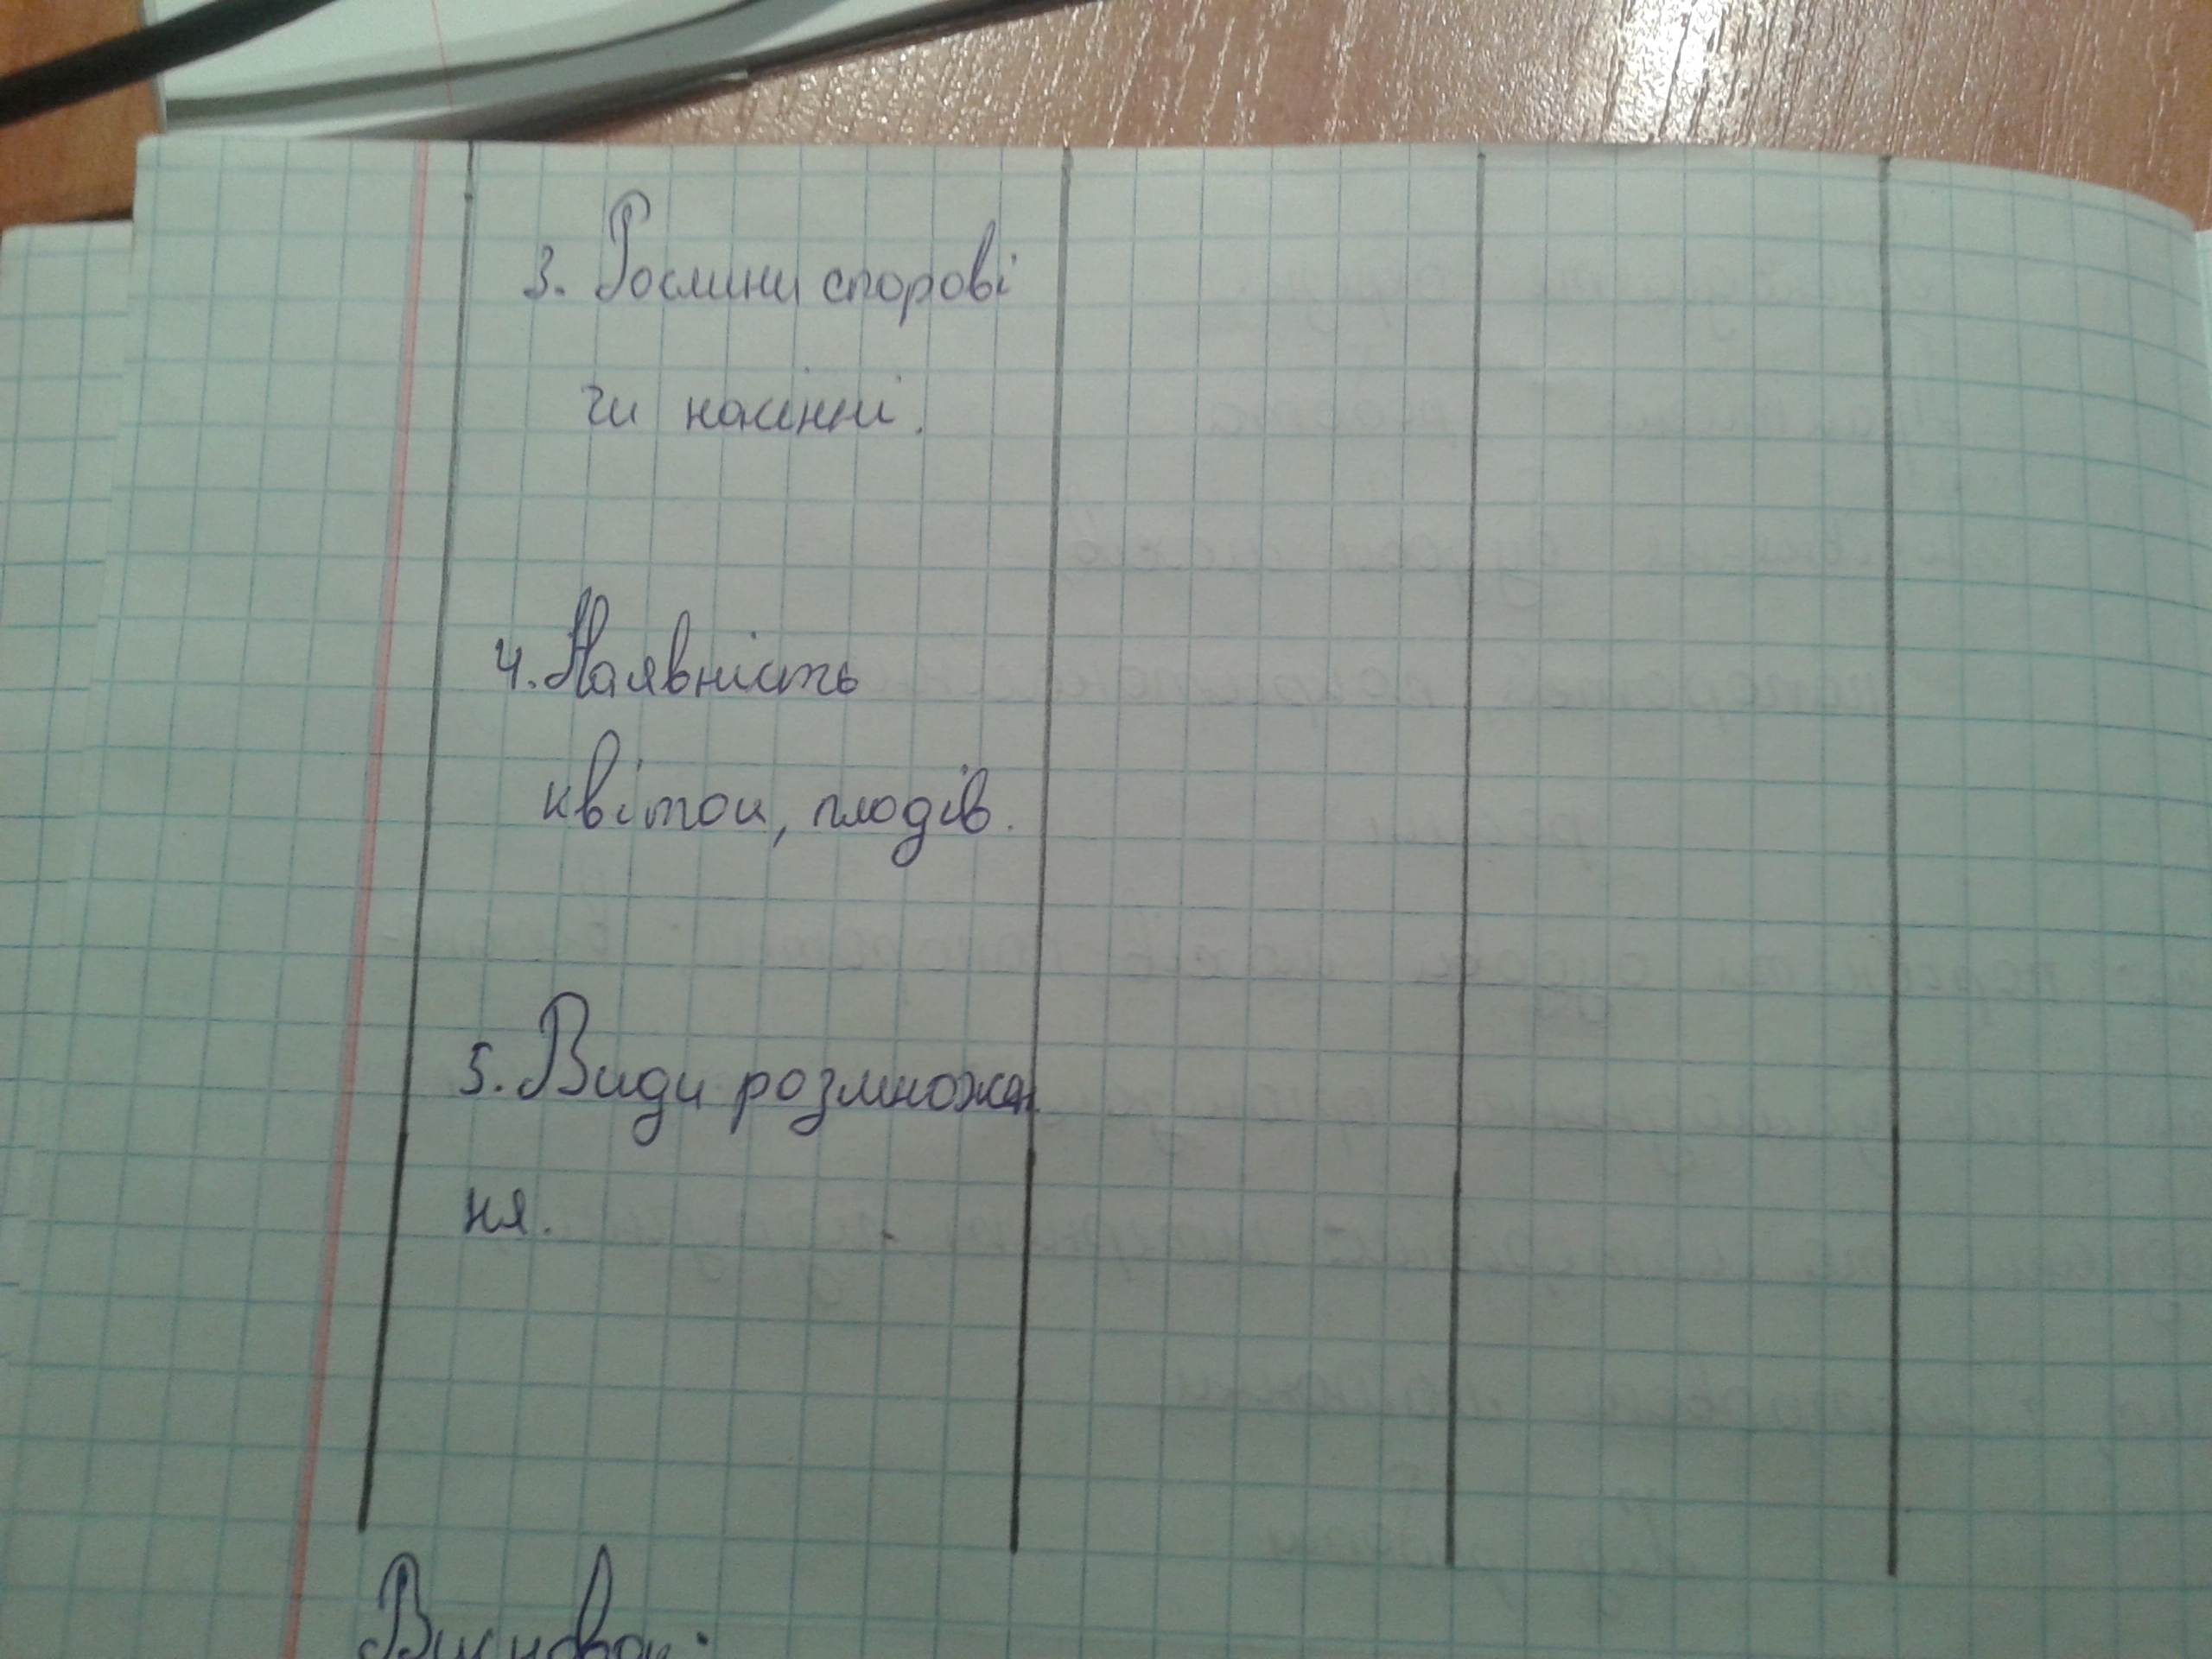 3. Рослини спорові
чи насінні.
4. Наявність
квіток, плодів.
5. Види розмножен
ня.
Висновок: